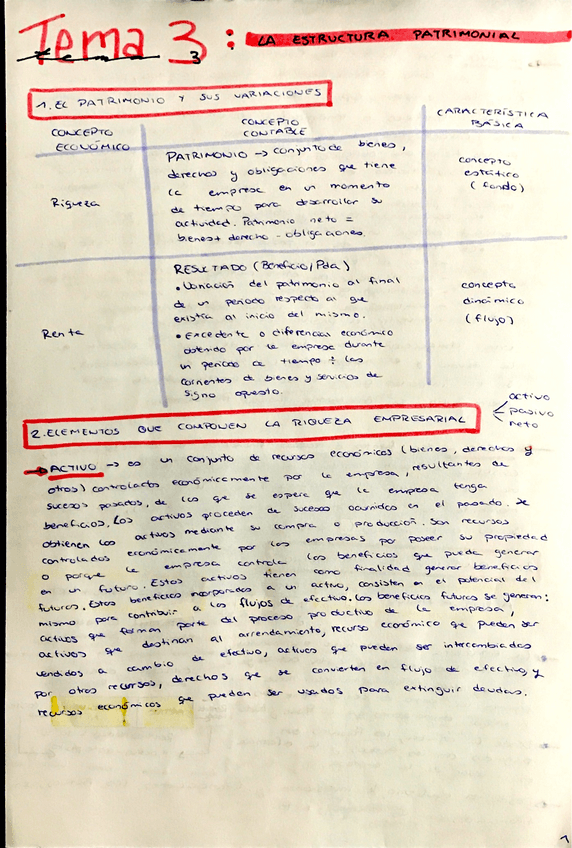 Tema 3 : LA ESTRUCTURA PATRIMONIAL
3
1. EL PATRIMONIO Y SUS VARIACIONES
CONCEPTO
ECONÓMICO
CONCEPTO
CONTABLE
CARACTERÍSTICA
BÁSICA
Riqueza
PATRIMONIO → conjunto de bienes,
derechos y obligaciones que tiene
la empresa en un momento
de tiempo para desarrollar su
actividad. Patrimonio neto =
bienes + derecho - obligaciones.
concepto
estático
(fondo)
Renta
RESULTADO (Beneficio/Pda)
• Variación del patrimonio al final
de un periodo respecto al que
existía al inicio del mismo.
• Excedente o diferencias económico
obtenido por la empresa durante
un periodo de tiempo ÷ las
corrientes de bienes y servicios de
signo opuesto.
concepto
dinámico
(flujo)
2. ELEMENTOS QUE COMPONEN LA RIQUEZA EMPRESARIAL
activo
pasivo
neto
→ ACTIVO → es un conjunto de recursos económicos (bienes, derechos y
otros) controlados económicamente por la empresa, resultantes de
sucesos pasados, de los que se espera que la empresa tenga
beneficios. Los activos proceden de sucesos ocurridos en el pasado. Se
obtienen los activos mediante su compra o producción. Son recursos
controlados económicamente por las empresas por poseer su propiedad
o porque la empresa controla los beneficios que pueda generar
en un futuro. Estos activos tienen como finalidad generar beneficios
futuros. Estos beneficios incorporados a un activo, consisten en el potencial del
mismo para contribuir a los flujos de efectivo. Los beneficios futuros se generan:
activos que forman parte del proceso productivo de la empresa,
activos que destinan al arrendamiento, recurso económico que pueden ser
vendidos a cambio de efectivo, activos que pueden ser intercambiados
por otros recursos, derechos que se convierten en flujo de efectivo, y
recursos económicos que pueden ser usados para extinguir deudas.
1